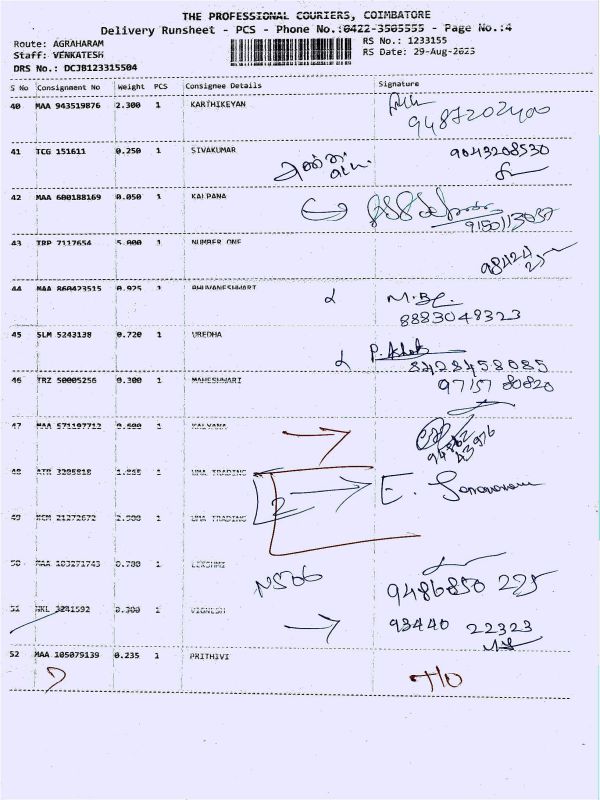 THE PROFESSIONAL COURIERS, COIMBATORE
Delivery Runsheet - PCS - Phone No.:0422-3505555 - Page No.:4
Route: AGRAHARAM RS No.: 1233155
Staff: VENKATESH RS Date: 29-Aug-2023
DRS No.: DCJB123315504
S No Consignment No Weight PCS Consignee Details Signature
40 MAA 943519876 2.300 1 KARTHIKEYAN
9487202400
41 TCG 151611 0.250 1 SIVAKUMAR 9043208530
42 MAA 600188169 0.050 1 KALPANA
9150113037
43 TRP 7117654 5.000 1 NUMBER ONE
98424
44 MAA 860423515 0.925 1 BHUVANESHWARI
8883048323
45 SLM 5243138 0.720 1 VREDHA
P. Ashok
8428458085
46 TRZ 50005256 0.300 1 MAHESHWARI 97157 80820
47 MAA 571197712 0.600 1 KALYANA
48 ATR 3205818 1 UMA TRADING E.
49 KCM 21272672 2.500 1 UMA TRADING
50 MAA 103271743 0.780 1 LEKSHMI
9486850 225
51 NKL 3241592 0.300 1 VIGNESH 93440 22323
52 MAA 105079139 0.235 1 PRITHIVI
T/O